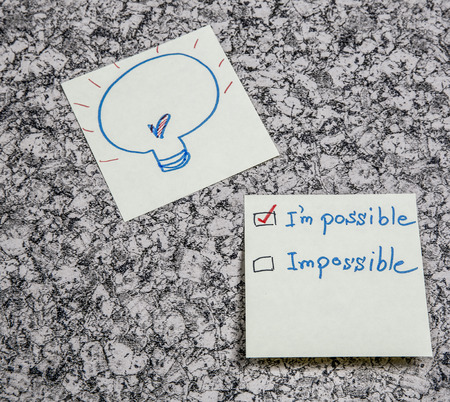 I'm possible
Impossible